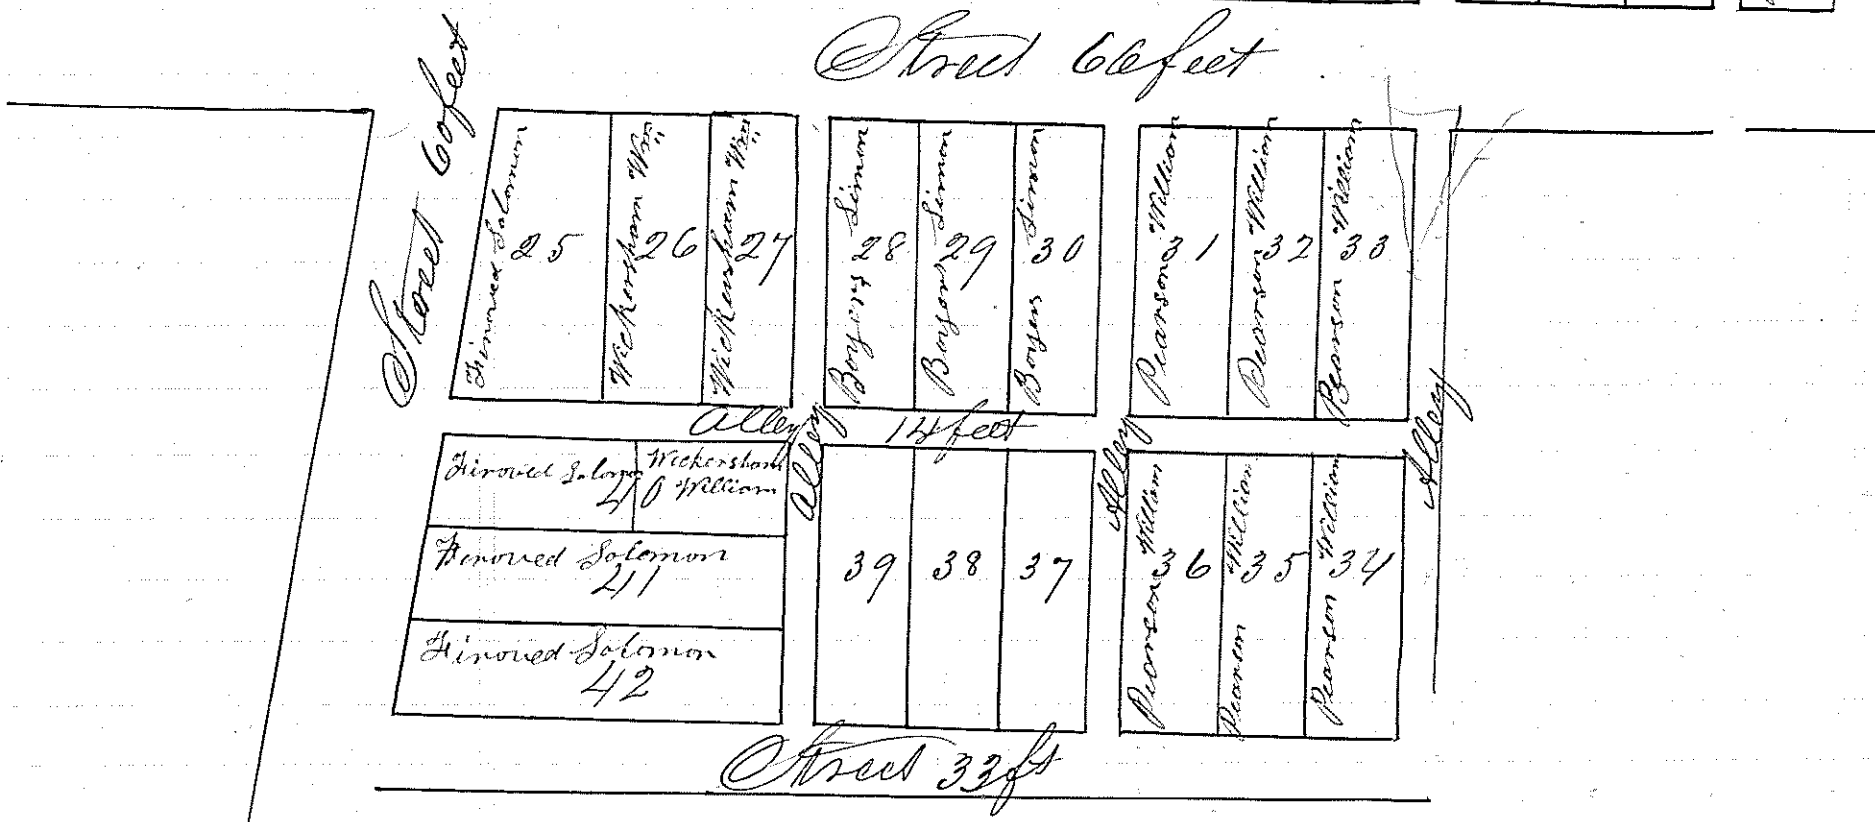 Street 66 feet
Street 60 feet
Finoved Solomon
25
Wickersham Wm
26
Wickersham Wm
27
Simon
28
Simon
29
Simon
30
Pearson William
31
Pearson William
32
Pearson William
33
Alley 14 feet
Alley
Alley
Alley
Finoved Solomon
40
Wickersham
William
Finoved Solomon
41
Finoved Solomon
42
39
38
37
Pearson William
36
Pearson William
35
Pearson William
34
Street 33 ft